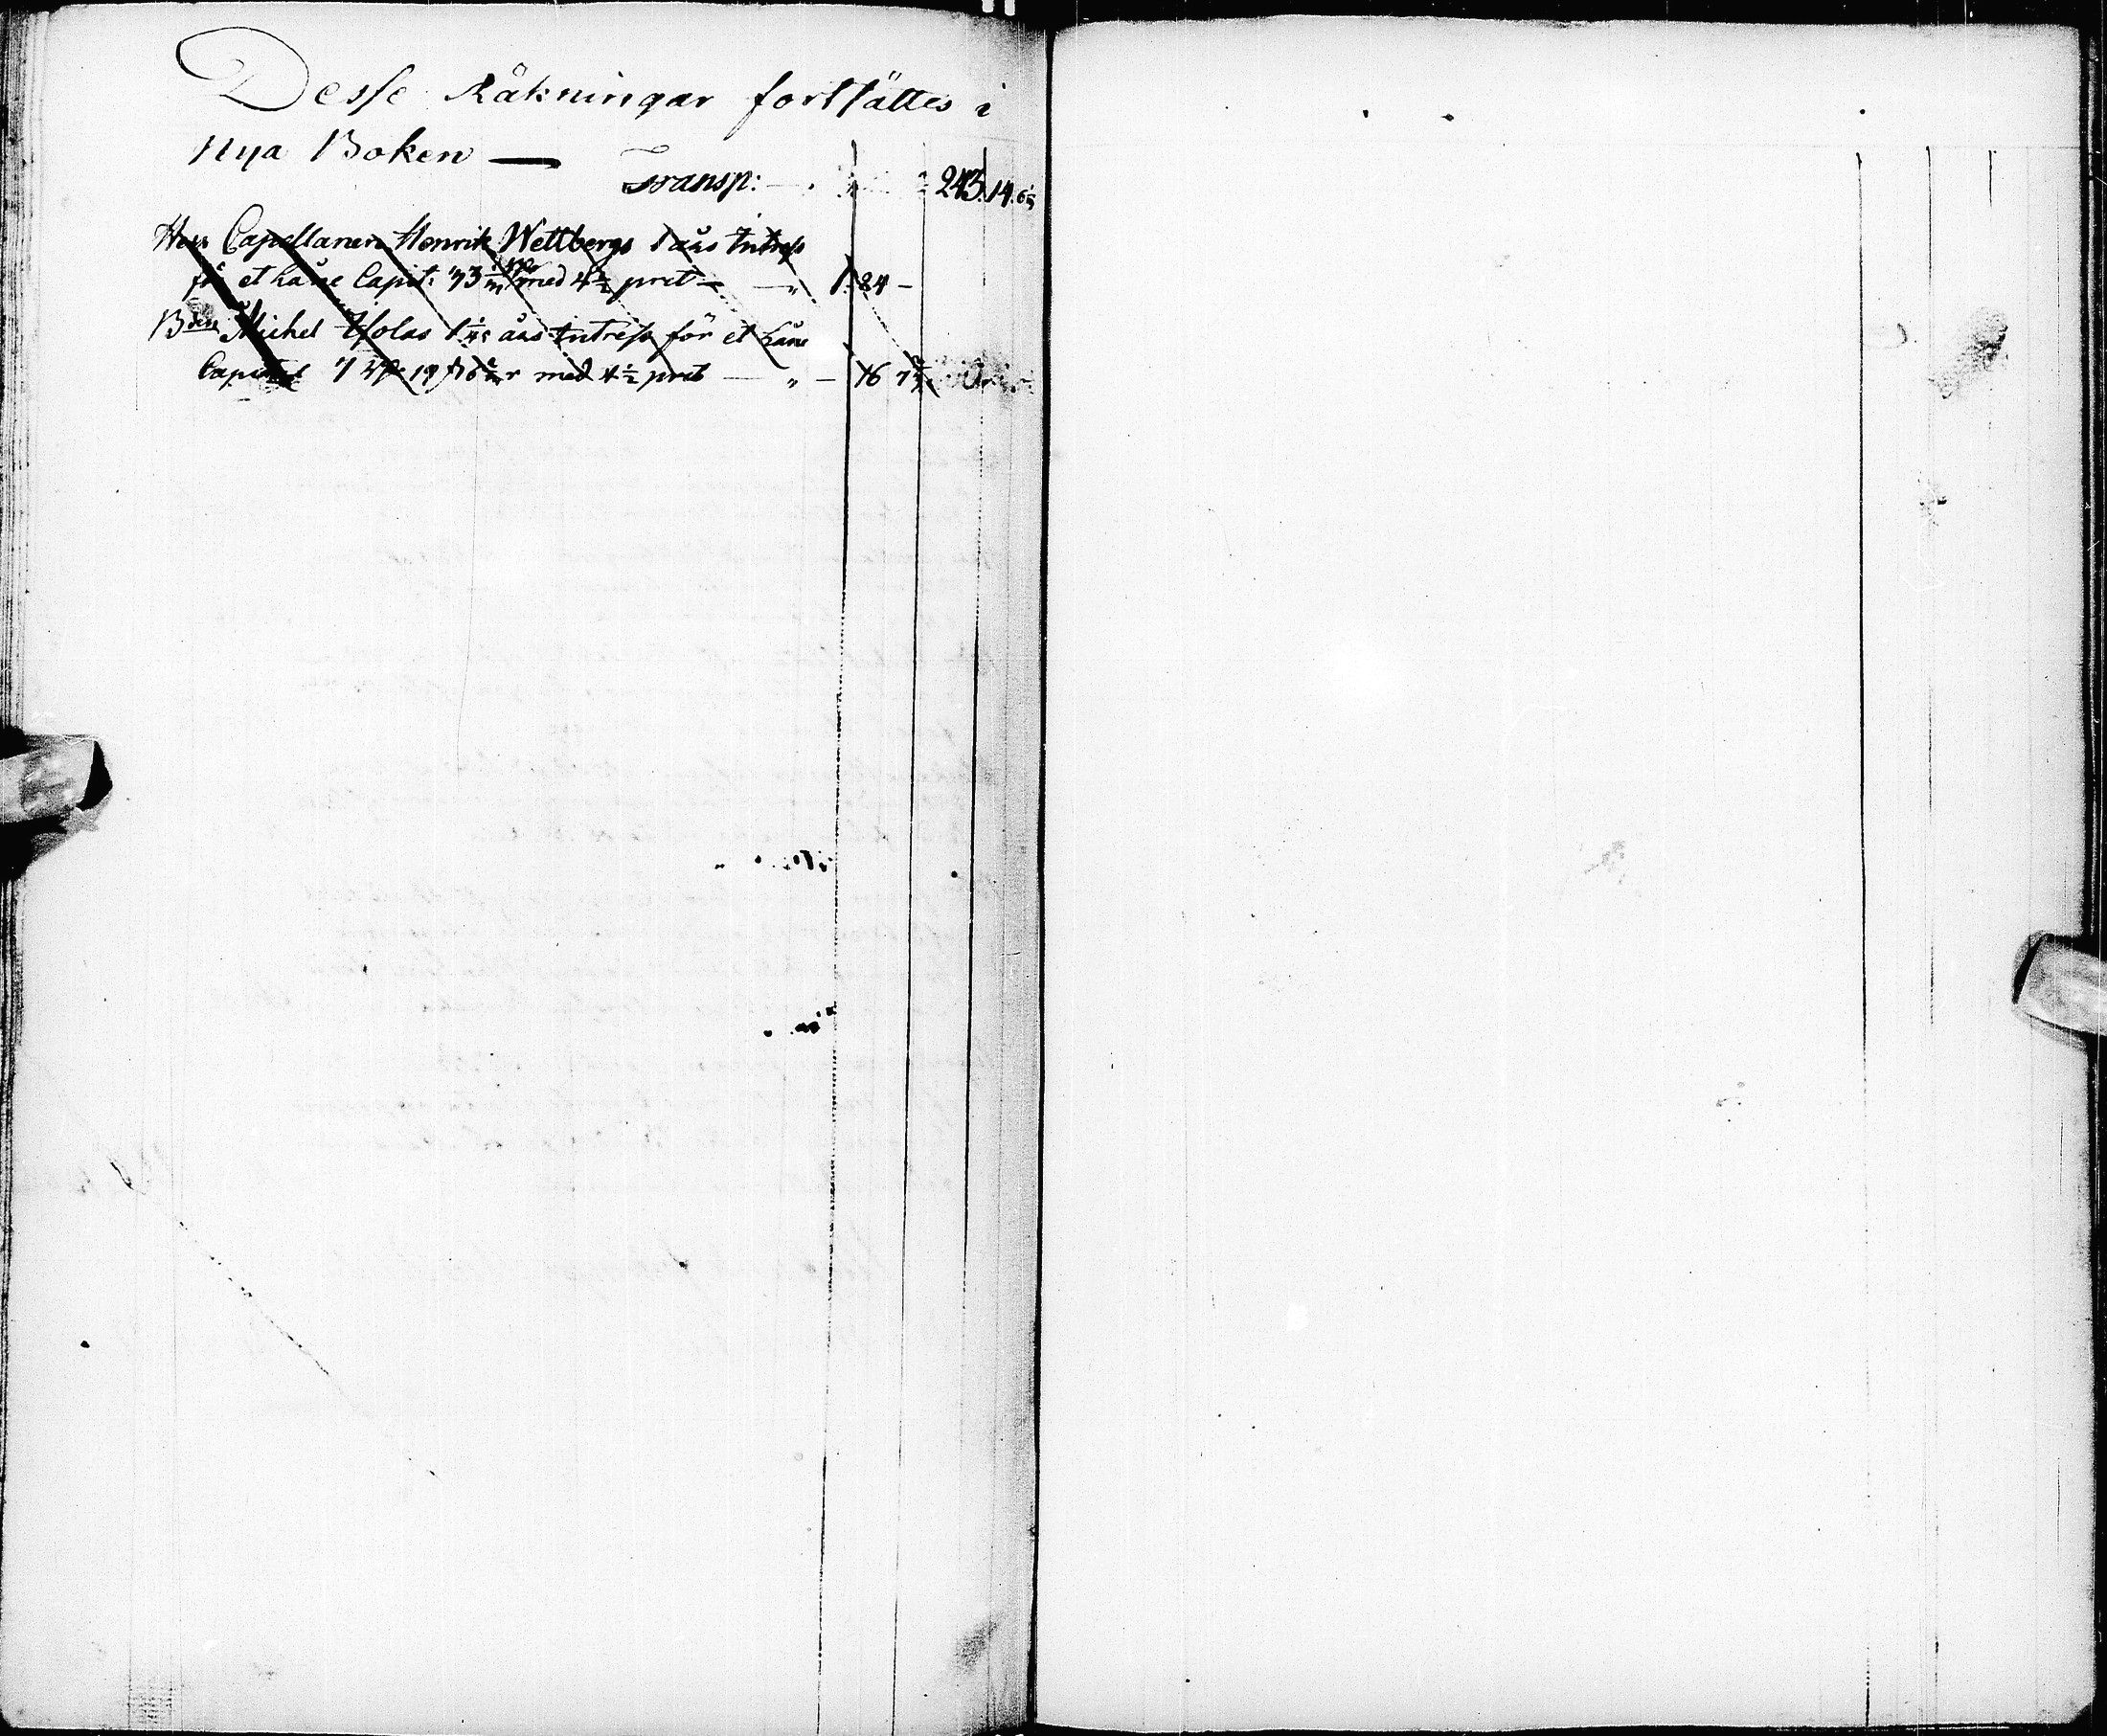 Desse Räkningar fortsättes i
nya Boken —
Transp: — 243. 14. 6
Herr Capellanen Henrik Wettbergs 1 åhrs Intress
för et Låne Capit: med 4 1/2 prct — „ 1. 24 –
Bden Michel åhrs Intress för et Låne
Capital 19 med 4 1/2 prct — „ — 16